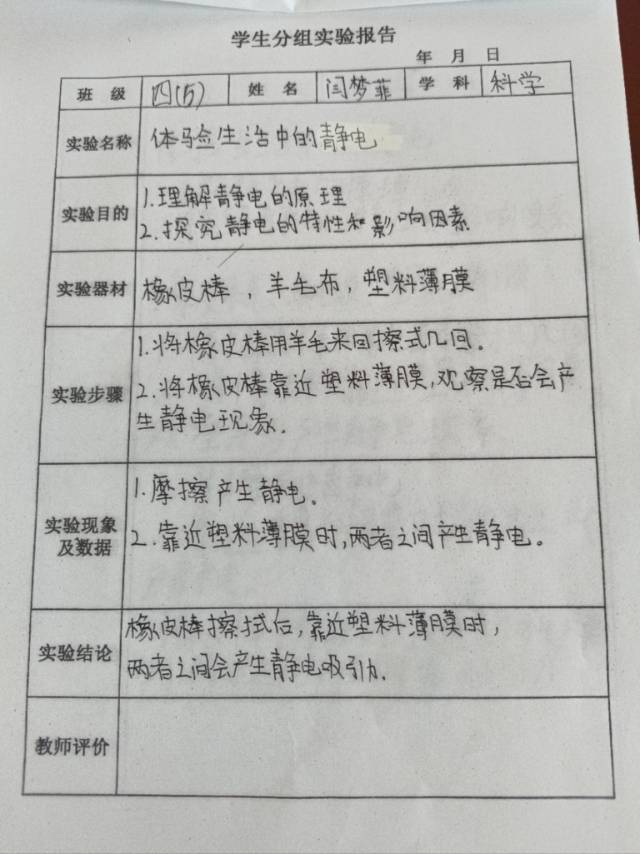 学生分组实验报告
年 月 日
班 级 四(5) 姓 名 闫梦菲 学 科 科学
实验名称 体验生活中的静电
实验目的 1.理解静电的原理
2.探究静电的特性和影响因素
实验器材 橡皮棒，羊毛布，塑料薄膜
实验步骤 1.将橡皮棒用羊毛来回擦式几回.
2.将橡皮棒靠近塑料薄膜,观察是否会产
生静电现象.
实验现象及数据 1.摩擦产生静电.
2.靠近塑料薄膜时,两者之间产生静电.
实验结论 橡皮棒擦拭后,靠近塑料薄膜时,
两者之间会产生静电吸引力.
教师评价